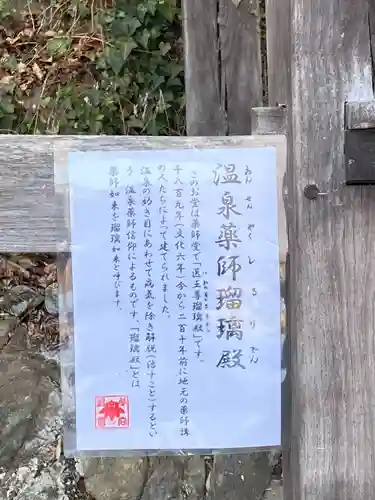 温泉薬師瑠璃殿
おんせんやくしるりでん
このお堂は薬師堂で「医王尊瑠璃殿」です。
千八百九年(文化六年)今から二百十年前に地元の薬師講
の人たちによって建てられました。
温泉の効き目にあわせて病気を除き解脱(治すこと)するとい
う、温泉薬師信仰によるものです。「瑠璃殿」とは
薬師如来を瑠璃如来と呼びます。